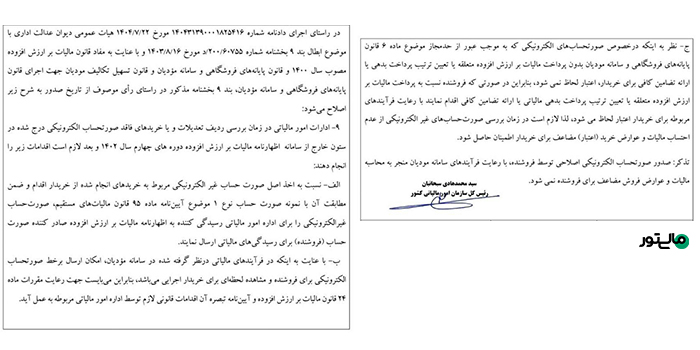 در راستای اجرای دادنامه شماره ۱۴۰۴۳۱۳۹۰۰۰۱۸۲۵۴۱۶ مورخ ۱۴۰۴/۷/۲۲ هیات عمومی دیوان عدالت اداری با
موضوع ابطال بند ۹ بخشنامه شماره ۲۰۰/۶۰۷۵۵/د مورخ ۱۴۰۳/۸/۱۶ و با عنایت به مفاد قانون مالیات بر ارزش افزوده
مصوب سال ۱۴۰۰ و قانون پایانه‌های فروشگاهی و سامانه مؤدیان و قانون تسهیل تکالیف مودیان جهت اجرای قانون
پایانه‌های فروشگاهی و سامانه مؤدیان، بند ۹ بخشنامه مذکور در راستای رأی موصوف از تاریخ صدور به شرح زیر
اصلاح می‌شود:
۹- ادارات امور مالیاتی در زمان بررسی ردیف تعدیلات و یا خریدهای فاقد صورتحساب الکترونیکی درج شده در
ستون خارج از سامانه اظهارنامه مالیات بر ارزش افزوده دوره های چهارم سال ۱۴۰۲ و بعد لازم است اقدامات زیر را
انجام دهند:
الف- نسبت به اخذ اصل صورت حساب غیر الکترونیکی مربوط به خریدهای انجام شده از خریدار اقدام و ضمن
مطابقت آن با نمونه صورت حساب نوع ۱ موضوع آیین‌نامه ماده ۹۵ قانون مالیات‌های مستقیم، صورت‌حساب
غیرالکترونیکی را برای اداره امور مالیاتی رسیدگی کننده به اظهارنامه مالیات بر ارزش افزوده صادر کننده صورت
حساب (فروشنده) برای رسیدگی‌های مالیاتی ارسال نمایند.
ب- با عنایت به اینکه در فرآیندهای مالیاتی درنظر گرفته شده در سامانه مؤدیان، امکان ارسال برخط صورتحساب
الکترونیکی برای فروشنده و مشاهده لحظه‌ای برای خریدار اجرایی می‌باشد، بنابراین می‌بایست جهت رعایت مقررات ماده
۲۴ قانون مالیات بر ارزش افزوده و آیین‌نامه تبصره آن اقدامات قانونی لازم توسط اداره امور مالیاتی مربوطه به عمل آید.
ج- نظر به اینکه درخصوص صورتحساب‌های الکترونیکی که به موجب عبور از حدمجاز موضوع ماده ۶ قانون
پایانه‌های فروشگاهی و سامانه مودیان بدون پرداخت مالیات بر ارزش افزوده متعلقه یا تعیین ترتیب پرداخت بدهی یا
ارائه تضامین کافی برای خریدار، اعتبار لحاظ نمی شود، بنابراین در صورتی که فروشنده نسبت به پرداخت مالیات بر
ارزش افزوده متعلقه یا تعیین ترتیب پرداخت بدهی مالیاتی یا ارائه تضامین کافی اقدام نمایند با رعایت فرآیندهای
مربوطه برای خریدار اعتبار لحاظ می شود، لذا لازم است در زمان بررسی صورت‌حساب‌های غیر الکترونیکی از عدم
احتساب مالیات و عوارض خرید (اعتبار) مضاعف برای خریدار اطمینان حاصل شود.
تذکر: صدور صورتحساب الکترونیکی اصلاحی توسط فروشنده، با رعایت فرآیندهای سامانه مودیان منجر به محاسبه
مالیات و عوارض فروش مضاعف برای فروشنده نمی شود.
سید محمدهادی سبحانیان
رئیس کل سازمان امور مالیاتی کشور
مالی‌تور